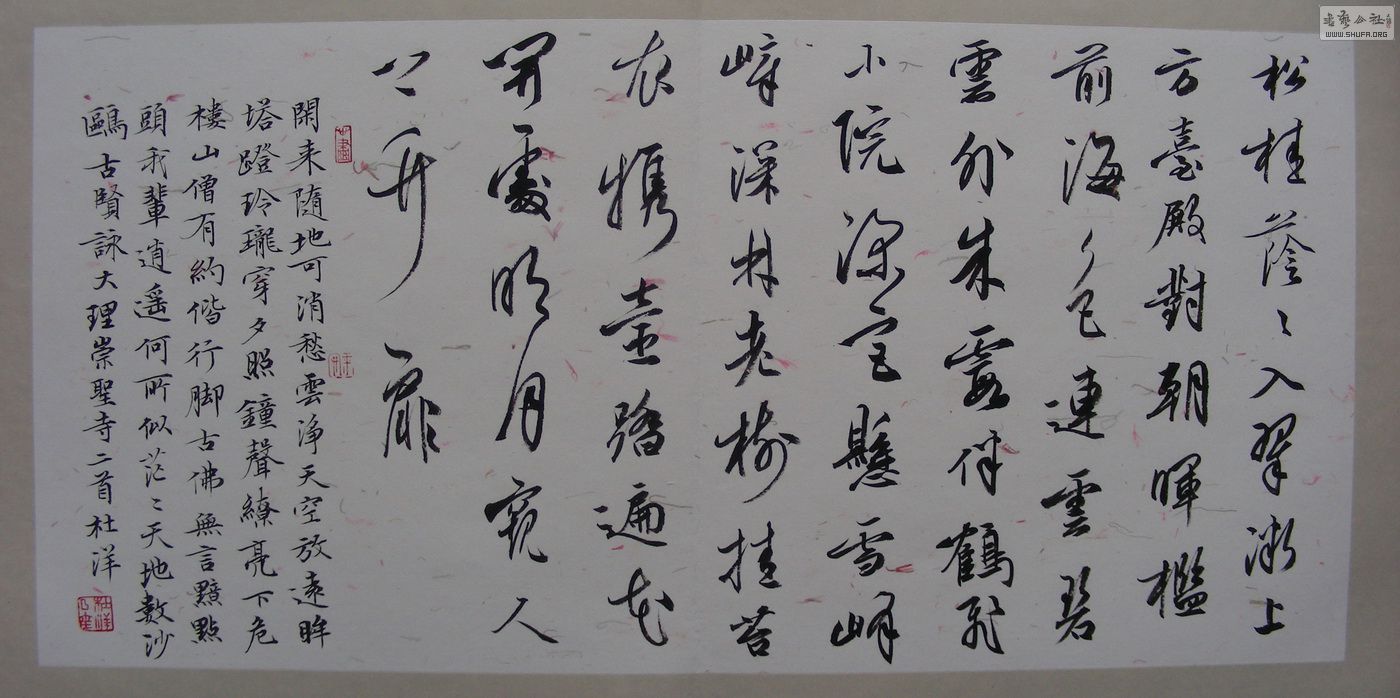 松桂蔭〻入翠微上
方臺殿對朝暉檻
前海色連雲碧
雲外朱霞伴鶴飛
小院深懸雪峰
嶂深林老樹挂苔
衣攜壺踏遍花
開處明月窺人
扉
閑来隨地可消愁雲淨天空放遠眸
塔蹬玲瓏穿夕照鐘聲繚亮下危
樓山僧有約偕行脚古佛無言黯點
頭我輩逍遥何所似茫〻天地數沙
鷗古賢詠大理崇聖寺二首杜洋
書藝公社
WWW.SHUFA.ORG